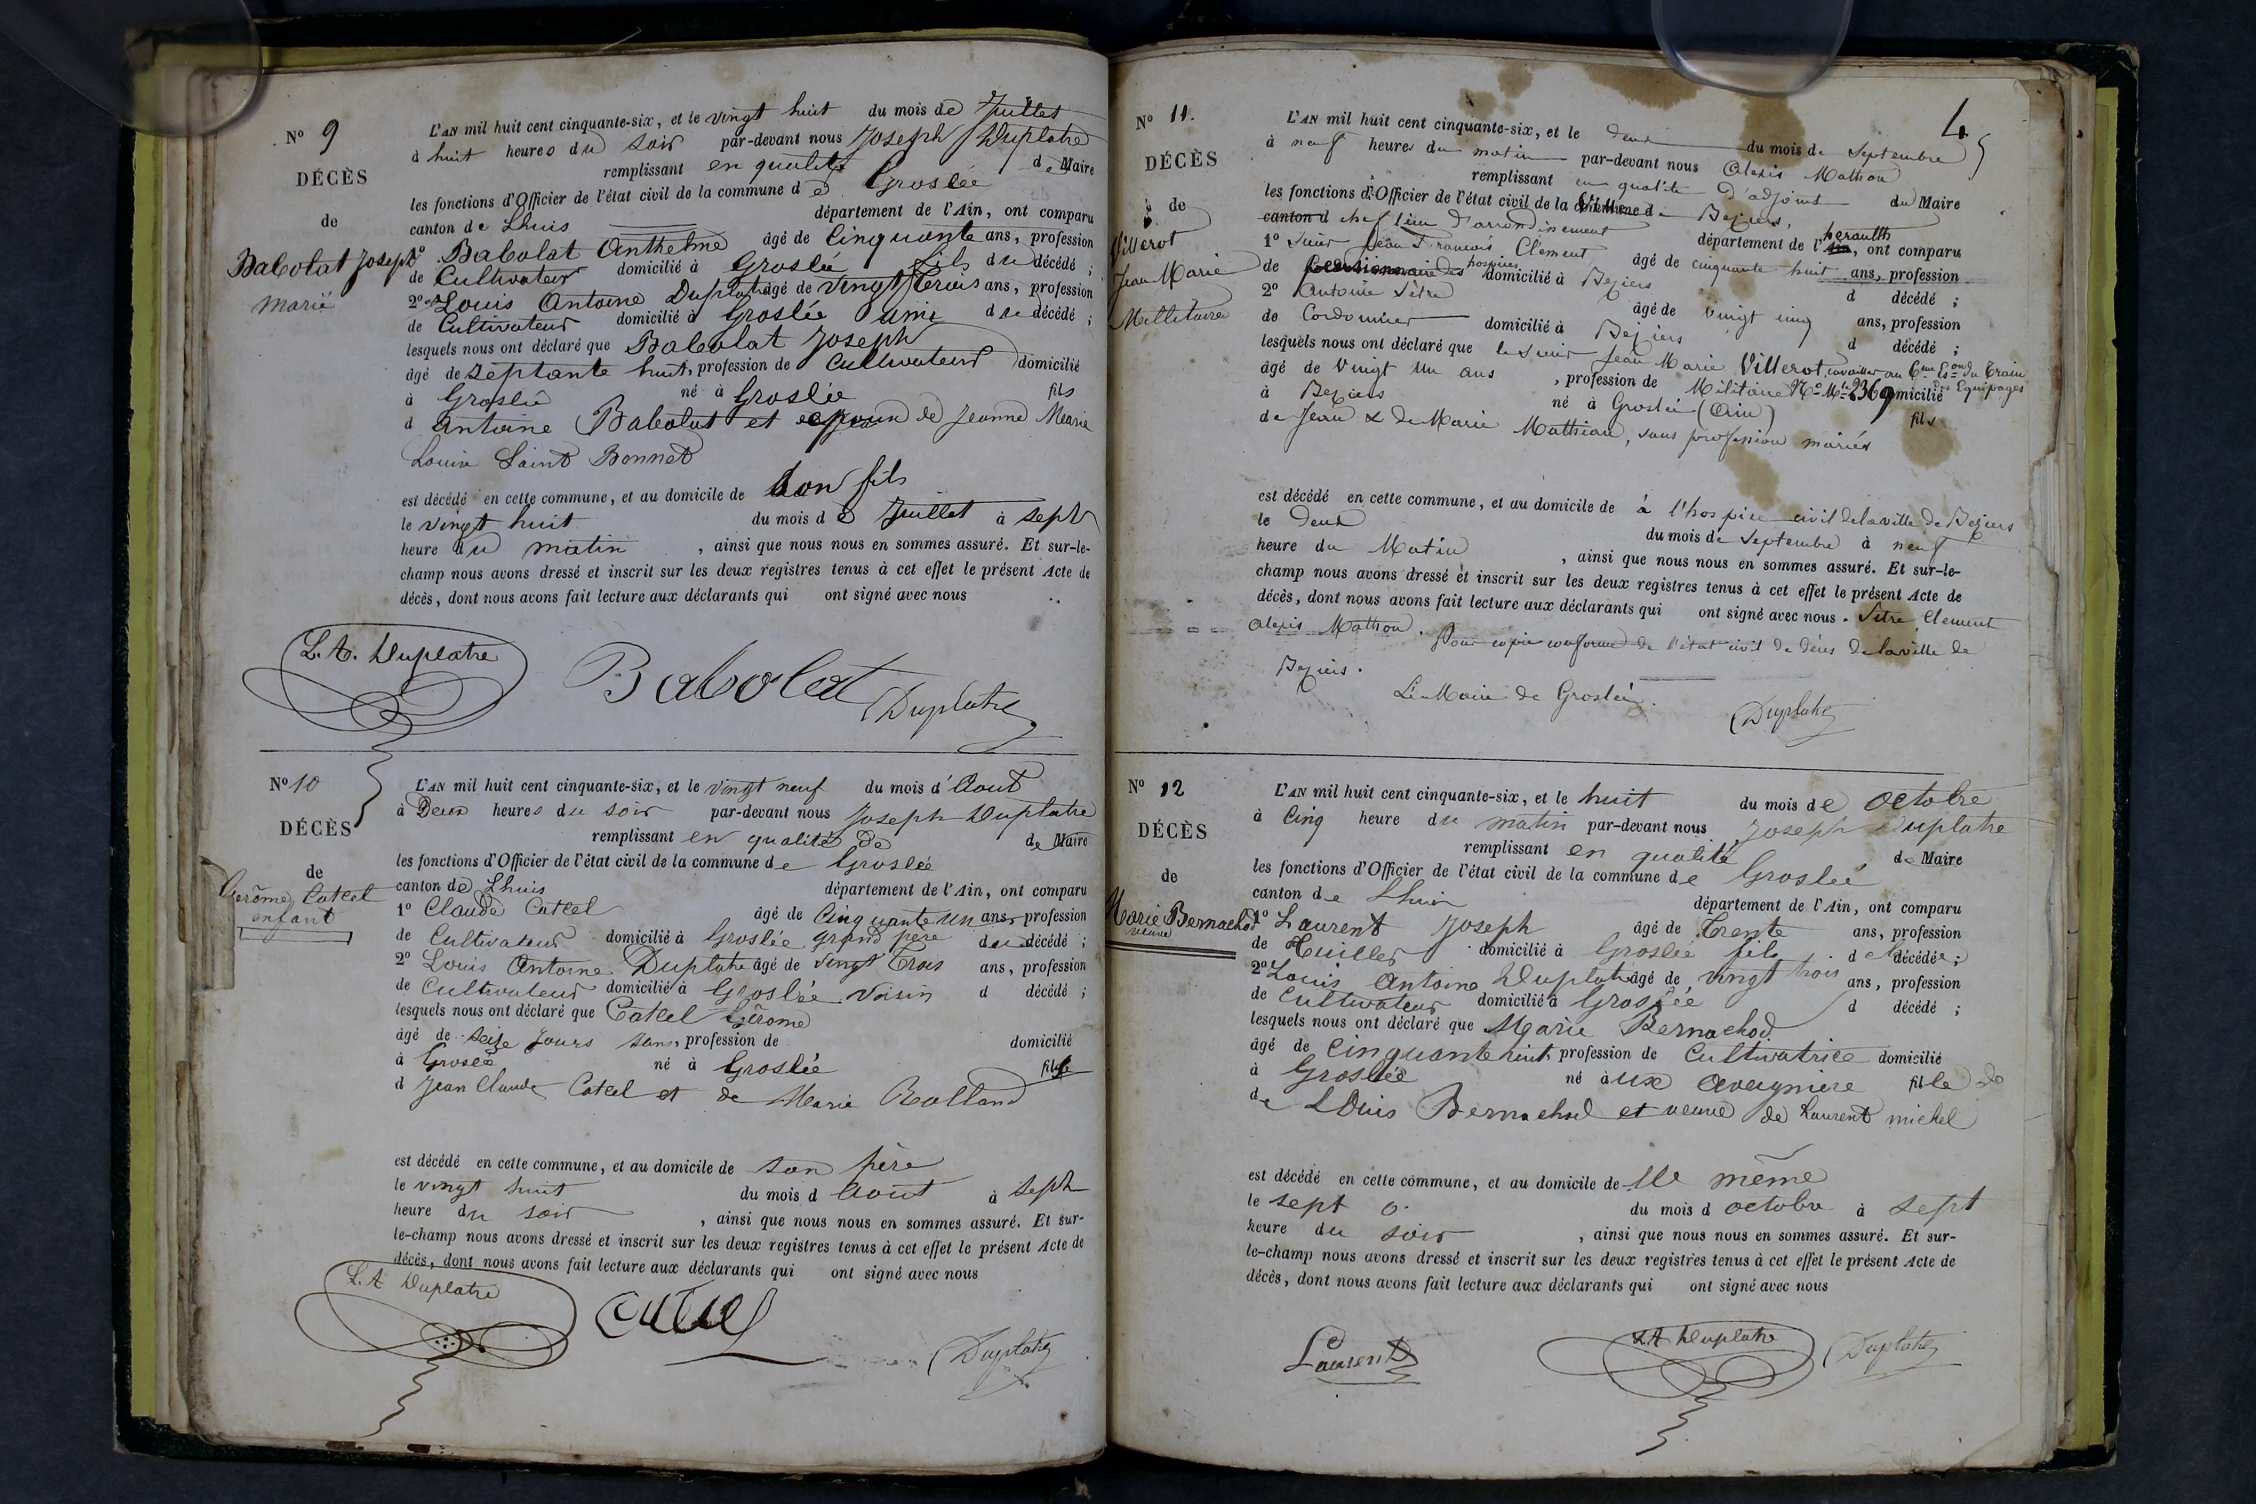 N° 9
DÉCÈS
de
Babolat Joseph
marié
L'AN mil huit cent cinquante-six, et le vingt huit du mois de Juillet
à huit heures du soir par-devant nous Joseph Duplatre
remplissant en qualité de Maire
les fonctions d'Officier de l'état civil de la commune de Groslée
canton de Lhuis département de l'Ain, ont comparu
1° Babolat Anthelme âgé de Cinquante ans, profession
de Cultivateur domicilié à Groslée fils du décédé ;
2° Louis Antoine Duplatre âgé de vingt trois ans, profession
de Cultivateur domicilié à Groslée ami du décédé ;
lesquels nous ont déclaré que Babolat Joseph
âgé de septante huit, profession de Cultivateur domicilié
à Groslée né à Groslée fils
d Antoine Babolat et epoux de Jeanne Marie
Louise Saint Bonnet
est décédé en cette commune, et au domicile de son fils
le vingt huit du mois de Juillet à sept
heure du matin, ainsi que nous nous en sommes assuré. Et sur-le-
champ nous avons dressé et inscrit sur les deux registres tenus à cet effet le présent Acte de
décès, dont nous avons fait lecture aux déclarants qui ont signé avec nous
L. A. Duplatre Babolat Duplatre
N° 10
DÉCÈS
de
Gerôme Catcel
enfant
L'AN mil huit cent cinquante-six, et le vingt neuf du mois d'Aout
à Deux heures du soir par-devant nous Joseph Duplatre
remplissant en qualité de de Maire
les fonctions d'Officier de l'état civil de la commune de Groslée
canton de Lhuis département de l'Ain, ont comparu
1° Claude Catcel âgé de Cinquante un ans, profession
de Cultivateur domicilié à Groslée grand père du décédé ;
2° Louis Antoine Duplatre âgé de vingt trois ans, profession
de Cultivateur domicilié à Groslée voisin d décédé ;
lesquels nous ont déclaré que Catcel Gêrome
âgé de seize jours sans, profession de domicilié
à Groslée né à Groslée fils
d Jean Claude Catcel et de Marie Rolland
est décédé en cette commune, et au domicile de son père
le vingt huit du mois d Aout à sept
heure du soir, ainsi que nous nous en sommes assuré. Et sur-
le-champ nous avons dressé et inscrit sur les deux registres tenus à cet effet le présent Acte de
décès, dont nous avons fait lecture aux déclarants qui ont signé avec nous
L. A Duplatre Catcel Duplatre
4
N° 11.
DÉCÈS
de
Villerot
Jean Marie
Millitaire
L'AN mil huit cent cinquante-six, et le deux du mois de Septembre
à neuf heures du matin par-devant nous Alexis Mathon
remplissant en qualité d'adjoint du Maire
les fonctions d'Officier de l'état civil de la Ville de Beziers,
canton d chef lieu d'arrondissement département de l'herault, ont comparu
1° Sieur Jean François Clement âgé de cinquante huit ans, profession
de pensionnaire des hospices domicilié à Beziers d décédé ;
2° Antoine Sètre âgé de vingt cinq ans, profession
de Cordonnier domicilié à Beziers d décédé ;
lesquels nous ont déclaré que le sieur Jean Marie Villerot, cavalier au 6me Eson du Train des Equipages
âgé de Vingt un ans, profession de Militaire N° Mle 2369 domicilié
à Beziers né à Groslée (Ain) fils
de Jean & de Marie Mathieu, sans profession mariés
est décédé en cette commune, et au domicile de à l'hospice civil de la ville de Beziers
le Deux du mois de Septembre à neuf
heure du Matin, ainsi que nous nous en sommes assuré. Et sur-le-
champ nous avons dressé et inscrit sur les deux registres tenus à cet effet le présent Acte de
décès, dont nous avons fait lecture aux déclarants qui ont signé avec nous. Sètre, Clement
Alexis Mathon. Pour copie conforme de l'état civil de décès de la ville de
Beziers.
Le Maire de Groslée.
Duplatre
N° 12
DÉCÈS
de
Marie Bernachod
veuve
L'AN mil huit cent cinquante-six, et le huit du mois de Octobre
à Cinq heure du matin par-devant nous Joseph Duplatre
remplissant en qualité de Maire
les fonctions d'Officier de l'état civil de la commune de Groslée
canton de Lhuis département de l'Ain, ont comparu
1° Laurent Joseph âgé de Trente ans, profession
de Huiller domicilié à Groslée fils d décédé ;
2° Louis Antoine Duplatre âgé de vingt trois ans, profession
de Cultivateur domicilié à Groslée d décédé ;
lesquels nous ont déclaré que Marie Bernachod
âgé de Cinquante huit, profession de Cultivatrice domicilié
à Groslée né à ux Avegniere fille de
de Louis Bernachod et veuve de Laurent michel
est décédé en cette commune, et au domicile de lle même
le sept du mois d octobre à sept
heure du soir, ainsi que nous nous en sommes assuré. Et sur-
le-champ nous avons dressé et inscrit sur les deux registres tenus à cet effet le présent Acte de
décès, dont nous avons fait lecture aux déclarants qui ont signé avec nous
Laurent L. A Duplatre Duplatre